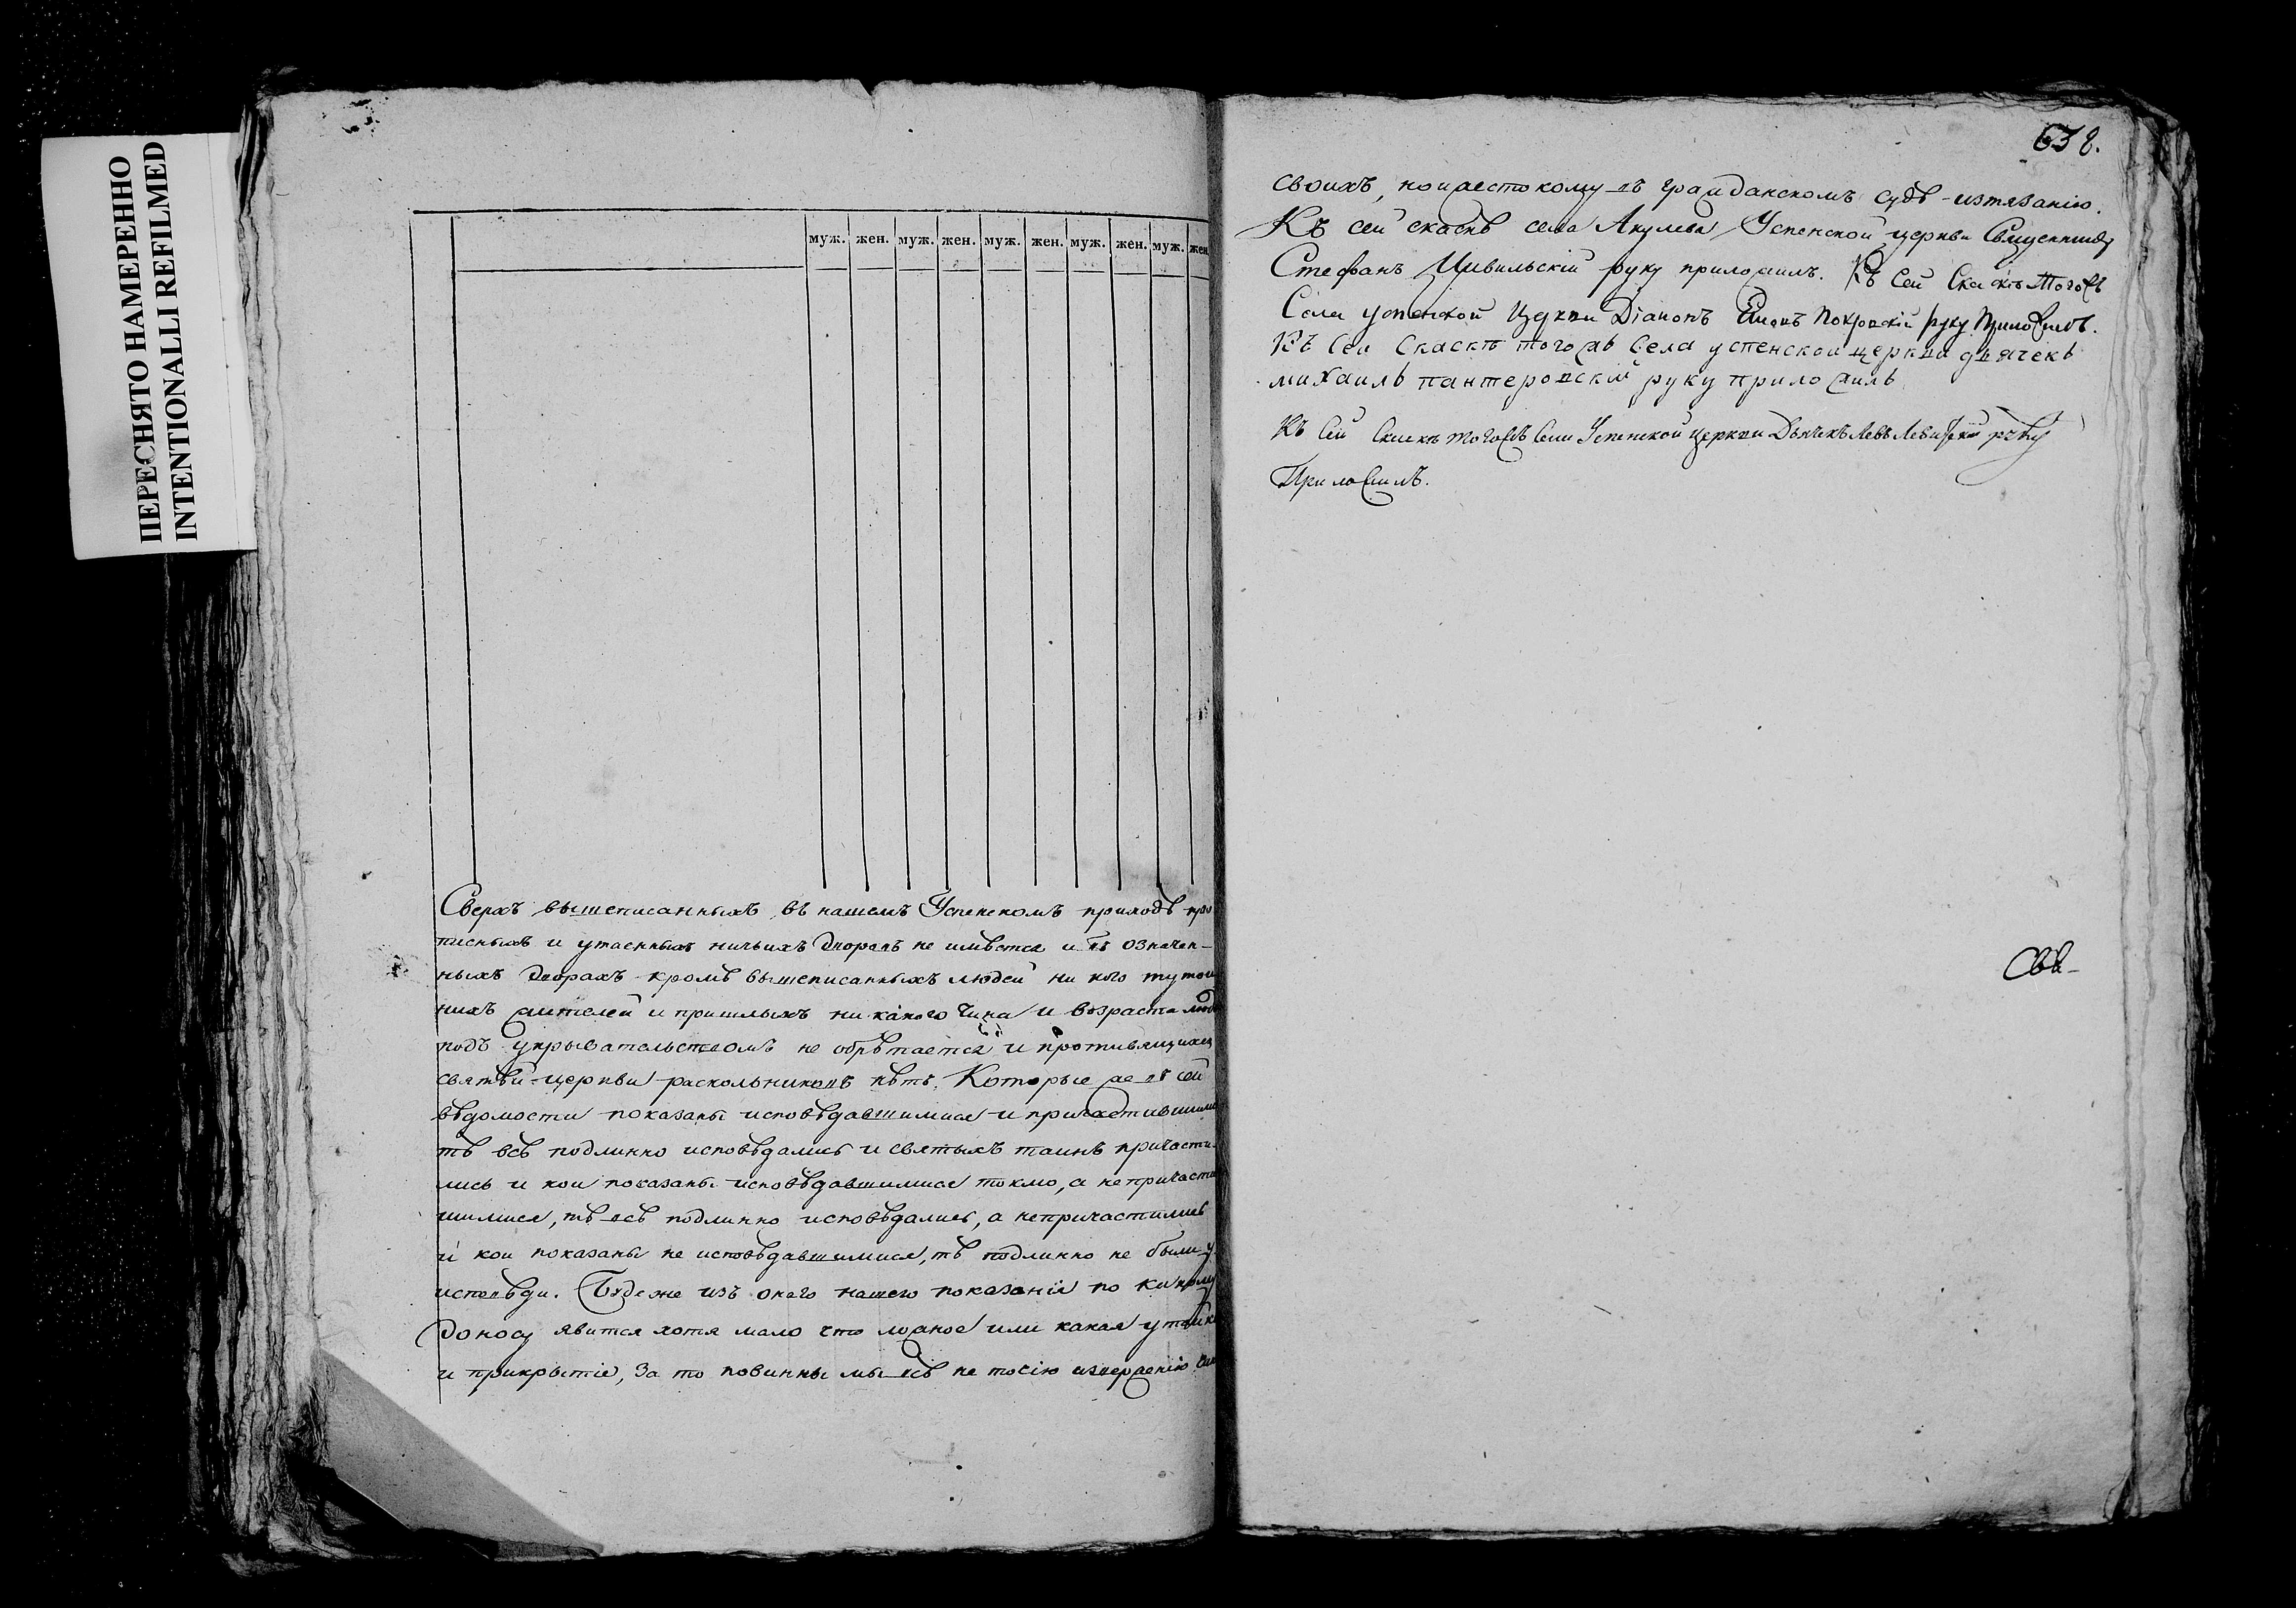 ПЕРЕСНЯТО НАМЕРЕННО
INTENTIONALLI REFILMED
муж. жен. муж. жен. муж. жен. муж. жен. муж. жен.
Сверхъ вышеписанныхъ въ нашемъ Успенскомъ приходѣ про
писныхъ и утаенныхъ ничьихъ дворовъ не имѣется и въ означен-
ныхъ дворахъ кромѣ вышеписанныхъ людей ни кого тутош
нихъ жителей и пришлыхъ ни какого чина и возраста людей
подъ укрывательствомъ не обрѣтается и противящихся
святѣй церкви раскольниковъ нѣтъ. Которые же въ сей
вѣдомости показаны исповѣдавшимися и причастившимися
тѣ всѣ подлинно исповѣдались и святыхъ таинъ причасти-
лись и кои показаны исповѣдавшимися токмо, а не причасти
шимися, тѣ всѣ подлинно исповѣдались, а непричастились
и кои показаны не исповѣдавшимися, тѣ подлинно не были у
исповѣди. Буде же изъ онаго нашего показанія по какому
доносу явится хотя мало что ложное или какая утайка
и прикрытіе, за то повинны мы всѣ не токію изверженію
638.
своихъ, но и жестокому въ гражданскомъ судѣ истязанію.
Къ сей скаскѣ села Акулева Успенской церкви Священникъ
Стефанъ Цивильскій руку приложилъ. Къ сей скаскѣ тогожъ
Села успенской Церкви Діаконъ Покровскій руку приложилъ.
Къ Сей Скаскѣ тогожъ Села успенской церкви дьячекъ
михаилъ пантеровскій руку приложилъ
Къ Сей Скаскѣ тогожъ Села Успенской церкви Дьячекъ Левъ Левитскій руку
Приложилъ.
Свѣ-